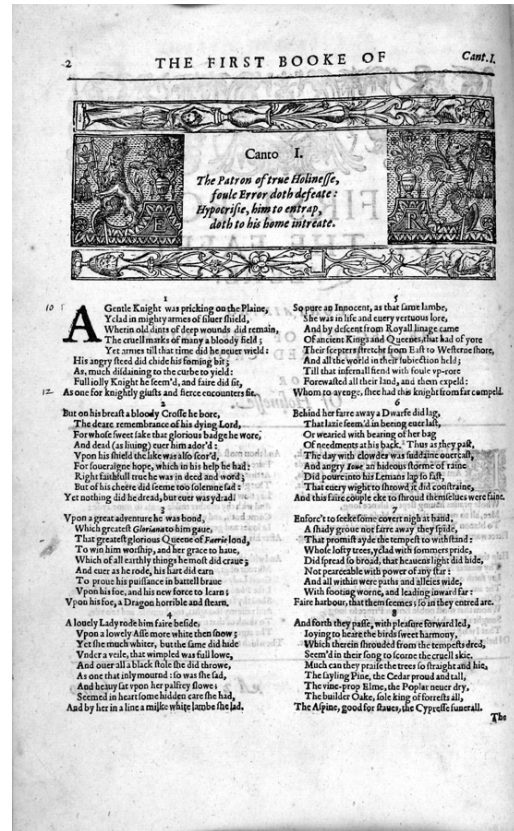 2
THE FIRST BOOKE OF
Cant.I.
Canto I.
The Patron of true Holinesse,
foule Error doth defeate:
Hypocrisie, him to entrap,
doth to his home intreate.
E
R
1
10
A Gentle Knight was pricking on the Plaine,
Yclad in mighty armes of siluer shield,
Wherin old dints of deep wounds did remain,
The cruell marks of many a bloody field;
Yet armes till that time did he neuer wield:
His angry steed did chide his foming bit;
As, much disdaining to the curbe to yield:
Full iolly Knight he seem'd, and faire did sit,
12
As one for knightly giusts and fierce encounters fit.
2
But on his breast a bloody Crosse he bore,
The deare remembrance of his dying Lord,
For whose sweet sake that glorious badge he wore,
And dead (as liuing) euer him ador'd:
Vpon his shield the like was also scor'd,
For soueraigne hope, which in his help he had:
Right faithfull true he was in deed and word;
But of his cheere did seeme too solemne sad:
Yet nothing did he dread, but euer was ydrad.
3
Vpon a great aduenture he was bond,
Which greatest Gloriana to him gaue,
That greatest glorious Queene of Faerie lond,
To win him worship, and her grace to haue,
Which of all earthly things he most did craue;
And euer as he rode, his hart did earn
To proue his puissance in battell braue
Vpon his foe, and his new force to learn;
Vpon his foe, a Dragon horrible and stearn.
4
A louely Lady rode him faire beside,
Vpon a lowely Asse more white then snow;
Yet she much whiter, but the same did hide
Vnder a veile, that wimpled was full lowe,
And ouer all a black stole she did throwe,
As one that inly mournd: so was she sad,
And heauy sat vpon her palfrey slowe;
Seemed in heart some hidden care she had,
And by her in a line a milke white lambe she lad.
5
So pure an Innocent, as that same lambe,
She was in life and euery vertuous lore,
And by descent from Royall linage came
Of ancient Kings and Queenes, that had of yore
Their scepters stretcht from East to Westerne shore,
And all the world in their subiection held;
Till that infernall fiend with foule vp-rore
Forewasted all their land, and them expeld:
Whom to avenge, shee had this knight from far compeld.
6
Behind her farre away a Dwarfe did lag,
That lazie seem'd in beeing euer last,
Or wearied with bearing of her bag
Of needments at his back. Thus as they past,
The day with clowdes was suddaine ouercast,
And angry Ioue an hideous storme of raine
Did poure into his Lemans lap so fast,
That euery wight to shrowd it did constraine,
And this faire couple eke to shroud themselues were faine.
7
Enforc't to seeke some covert nigh at hand,
A shady groue not farre away they spide,
That promist ayde the tempest to withstand:
Whose lofty trees, yclad with sommers pride,
Did spread so broad, that heauens light did hide,
Not pearceable with power of any starr:
And all within were paths and alleies wide,
With footing worne, and leading inward farr:
Faire harbour, that them seemes; so in they entred are.
8
And forth they passe, with pleasure forward led,
Ioying to heare the birds sweet harmony,
Which therein shrouded from the tempests dred,
Seem'd in their song to scorne the cruell skie.
Much can they praise the trees so straight and hie,
The sayling Pine, the Cedar proud and tall,
The vine-prop Elme, the Poplar neuer dry,
The builder Oake, sole king of forrests all,
The Aspine, good for staues, the Cypresse funerall.
The